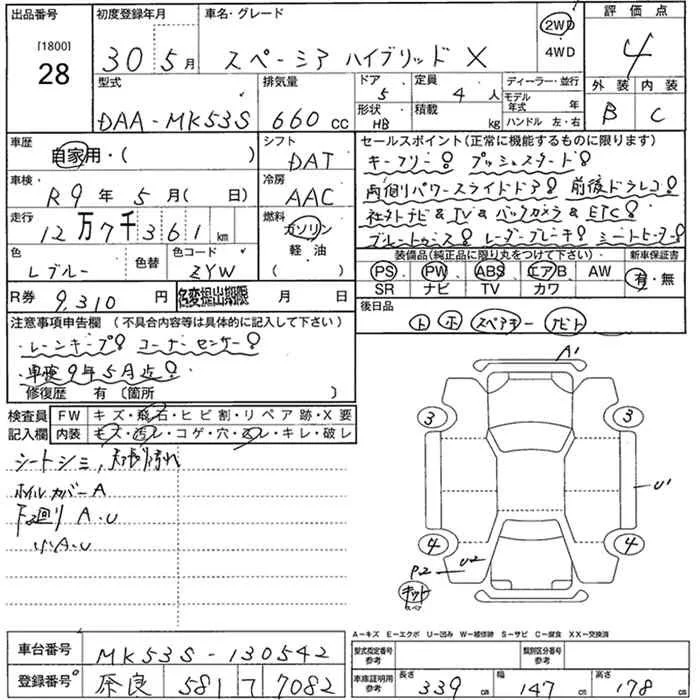 出品番号 [1800] 28
初度登録年月 30 5月
車名・グレード スペーシア ハイブリッド X
2WD
4WD
評価点 4
外装 B 内装 C
型式 DAA-MK53S
排気量 660 cc
ドア 5
定員 4 人
形状 HB
積載 kg
ディーラー・並行
モデル年式 年
ハンドル 左・右
車歴 自家用・( )
シフト DAT
車検 R9年 5月( 日)
冷房 AAC
走行 12万7千361 km
燃料 ガソリン
軽油
( )
色 Lブルー
色替
色コード ZYW
R券 9,310 円
名変提出期限 月 日
セールスポイント(正常に機能するものに限ります)
キーフリー プッシュスタート
両側パワースライドドア 前後ドラレコ
社外ナビ & TV & バックカメラ & ETC
ブレーキ シートヒーター
装備品(純正品に限り丸をつけて下さい)
新車保証書
PS PW ABS エアB AW
SR ナビ TV カワ
有・無
後日品
ト ホ スペアキー ナビト
注意事項申告欄 (不具合内容等は具体的に記入して下さい)
・レーンキープ コーナーセンサー
・車検9年5月迄
修復歴 有 (箇所 )
検査員記入欄
FW キズ・飛石・ヒビ割・リペア跡・X要
内装 キズ・汚レ・コゲ・穴・スレ・キレ・破レ
シートシミ, 天張り汚れ
ホイルカバー A
下廻り A・U
小A・U
A1
3 3
U1
4 4
P2 U2
キット
A-キズ E-エクボ U-凹み W-補修跡 S-サビ C-腐食 XX-交換済
車台番号 MK53S-130542
登録番号 奈良 581 7082
型式指定番号 参考
類別区分番号 参考
車庫証明用 参考
長さ 339 cm
幅 147 cm
高さ 178 cm